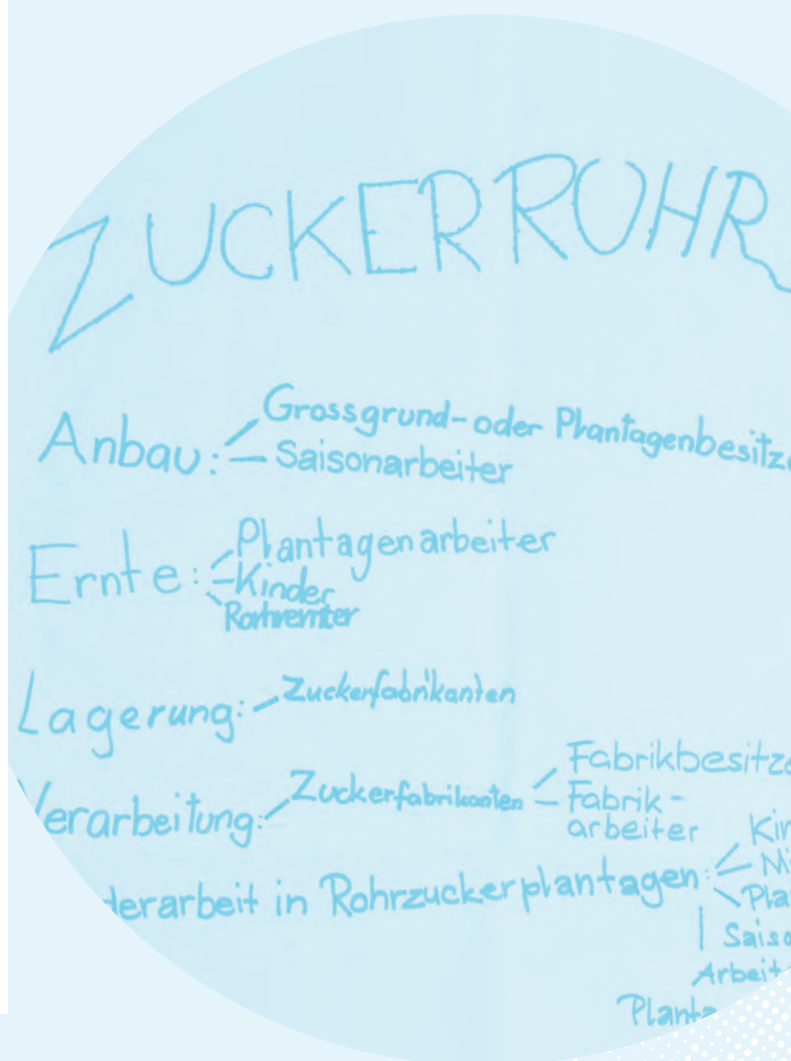 ZUCKERROHR
Anbau: Grossgrund- oder Plantagenbesitze
Saisonarbeiter
Ernte: Plantagenarbeiter
Kinder
Lagerung: Zuckerfabrikanten
Verarbeitung: Zuckerfabrikanten Fabrikbesitze
Fabrik-
arbeiter
derarbeit in Rohrzuckerplantagen: Kin
Mi
Pla
Saiso
Arbeit
Planta